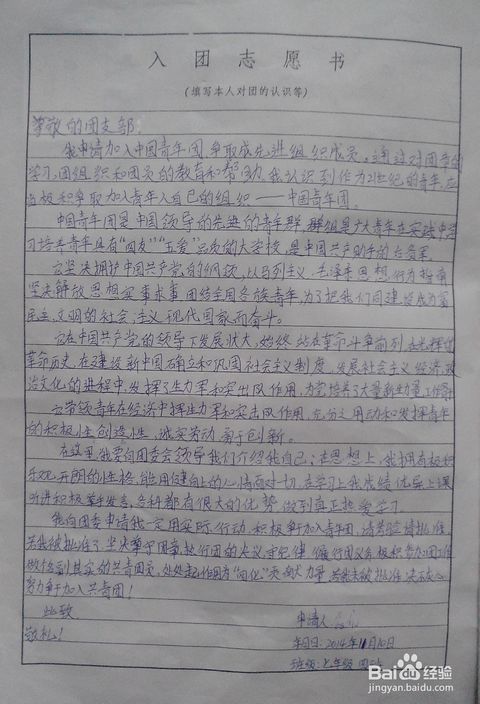 入团志愿书
(填写本人对团的认识等)
尊敬的团支部:
我申请加入中国青年团争取成先进组织成员。通过对团章的
学习,团组织和团员的教育和帮助,我认识到作为21世纪的青年,应
当极积争取加入青年人自己的组织——中国青年团。
中国青年团是中国领导的先进的青年群,群组是广大青年在实践中学
习培养青年具有"四有""五爱"品质的大学校,是中国共产助手的后备军。
它坚决拥护中国共产党的纲领,以马列主义,毛泽东思想,行为指南
坚决解放思想实事求事团结全国各族青年,为了把我们同建设成为富
民主,文明的社会主义现代国家而奋斗。
它在中国共产党的领导下发展状大,始终站在革命斗争前列,
革命历史,在建设新中国确立和巩固社会主义制度,发展社会主义经济,政
治文化的进程中,发挥了生力军和突出队作用,为党培养了大量新生力量
它带领青年在经济中挥生力军和突击队作用,充分之用动和发挥青年
的积极性创造性,诚实劳动,勇于创新。
在这里,我要向团委会领导我们介绍我自己:在思想上,我拥有极积
乐观开朗的性格,能用健向上的心情面对一切,在学习上我成绩优异上课
听讲和积极举手发言,各科都有很大的优势,做到真正热爱学习。
我向团委申请我一定用实际行动积极争加入青年团,请考验
若我被批准了坚决遵守团章,执行团的决议守纪律,偏行团义务,极积参加团工作
做名付其实的共青团员,处处起作用为"四化"贡献大力量
努力争于加入共青团!
此致
敬礼!
申请人:
年月日:2014年11月10日
班级:七年级
Baidu经验
jingyan.baidu.com